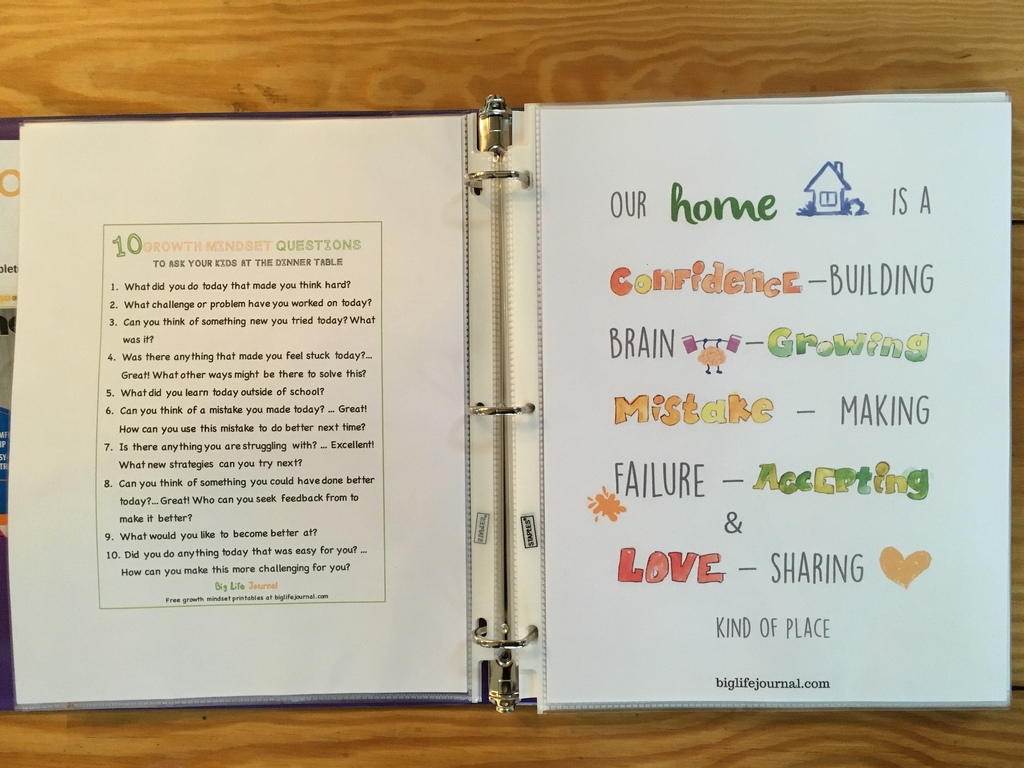 10 GROWTH MINDSET QUESTIONS
TO ASK YOUR KIDS AT THE DINNER TABLE
1. What did you do today that made you think hard?
2. What challenge or problem have you worked on today?
3. Can you think of something new you tried today? What
was it?
4. Was there anything that made you feel stuck today?...
Great! What other ways might be there to solve this?
5. What did you learn today outside of school?
6. Can you think of a mistake you made today? ... Great!
How can you use this mistake to do better next time?
7. Is there anything you are struggling with? ... Excellent!
What new strategies can you try next?
8. Can you think of something you could have done better
today?... Great! Who can you seek feedback from to
make it better?
9. What would you like to become better at?
10. Did you do anything today that was easy for you? ...
How can you make this more challenging for you?
Big Life Journal
Free growth mindset printables at biglifejournal.com
STAPLES
OUR home IS A
Confidence - BUILDING
BRAIN - Growing
Mistake - MAKING
FAILURE - Accepting
&
LOVE - SHARING
KIND OF PLACE
biglifejournal.com